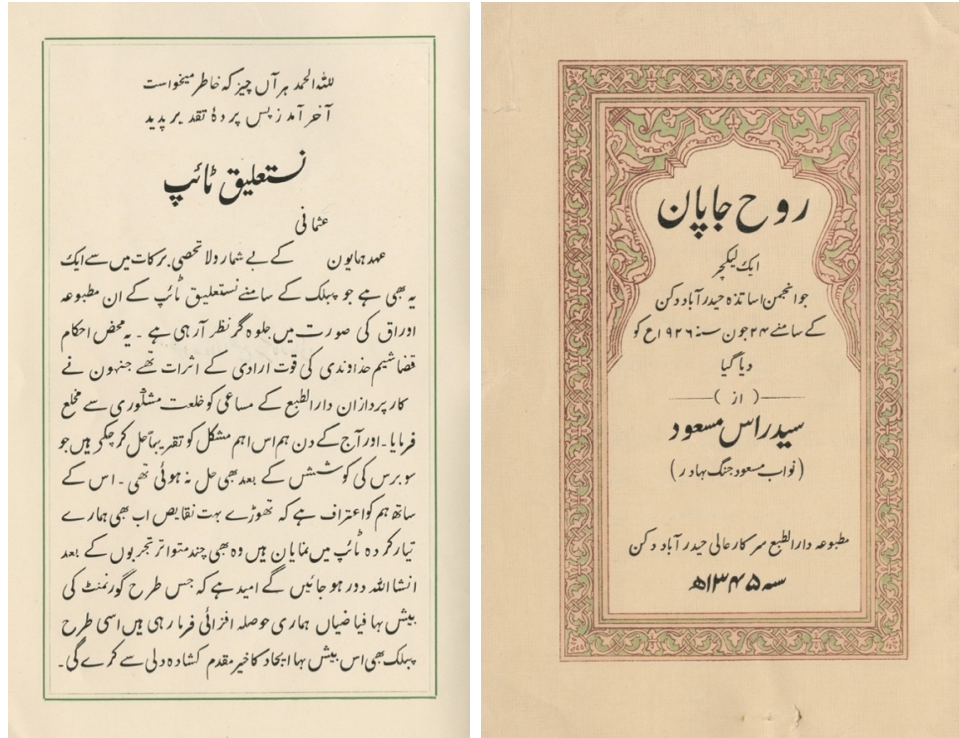 للہ الحمد ہر آں چیز کہ خاطر میخواست
آخر آمد ز پس پردۂ تقدیر پدید
نستعلیق ٹائپ
عثمانی
عہد ہمایون کے بے شمار ولاتحصی برکات میں سے ایک
یہ بھی ہے جو پبلک کے سامنے نستعلیق ٹائپ کے ان مطبوعہ
اوراق کی صورت میں جلوہ گر نظر آرہی ہے ۔ یہ محض احکام
قضا شیم خداوندی کی قوت ارادی کے اثرات تھے جنہون نے
کارپردازان دارالطبع کے مساعی کو خلعت مشکوری سے مخلع
فرمایا ۔ اور آج کے دن ہم اس اہم مشکل کو تقریباً حل کرچکے ہیں جو
سو برس کی کوشش کے بعد بھی حل نہ ہوئی تھی ۔ اس کے
ساتھ ہم کو اعتراف ہے کہ تھوڑے بہت نقایص اب بھی ہمارے
تیار کردہ ٹائپ میں نمایان ہیں وہ بھی چند متواتر تجربوں کے بعد
انشااللہ دور ہو جائیں گے امید ہے کہ جس طرح گورنمنٹ کی
بیش بہا فیاضیاں ہماری حوصلہ افزائی فرما رہی ہیں اسی طرح
پبلک بھی اس بیش بہا ایجاد کا خیر مقدم کشادہ دلی سے کرے گی ۔
روح جاپان
ایک لیکچر
جو انجمن اساتذہ حیدرآباد دکن
کے سامنے ۲۴ جون سنہ ۱۹۲۶ع کو
دیا گیا
( از )
سید راس مسعود
(نواب مسعود جنگ بہادر)
مطبوعہ دارالطبع سرکار عالی حیدرآباد دکن
سنہ ۱۳۴۵ھ